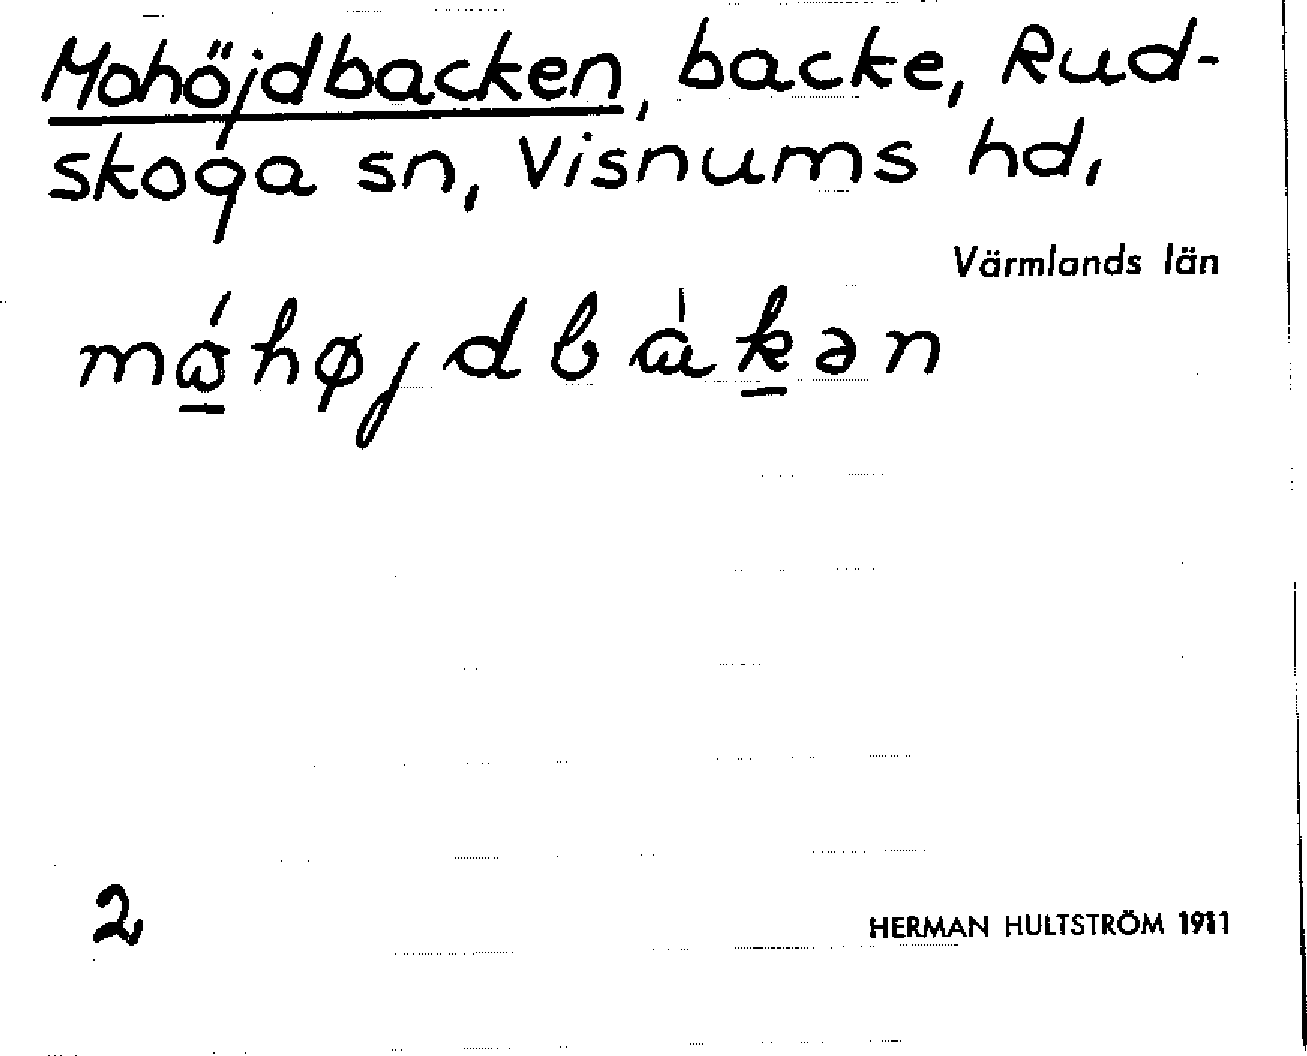 Mohöjdbacken, backe, Rud-
skoga sn, Visnums hd,
Värmlands län
mǫ́højdbàkən
2
HERMAN HULTSTRÖM 1911